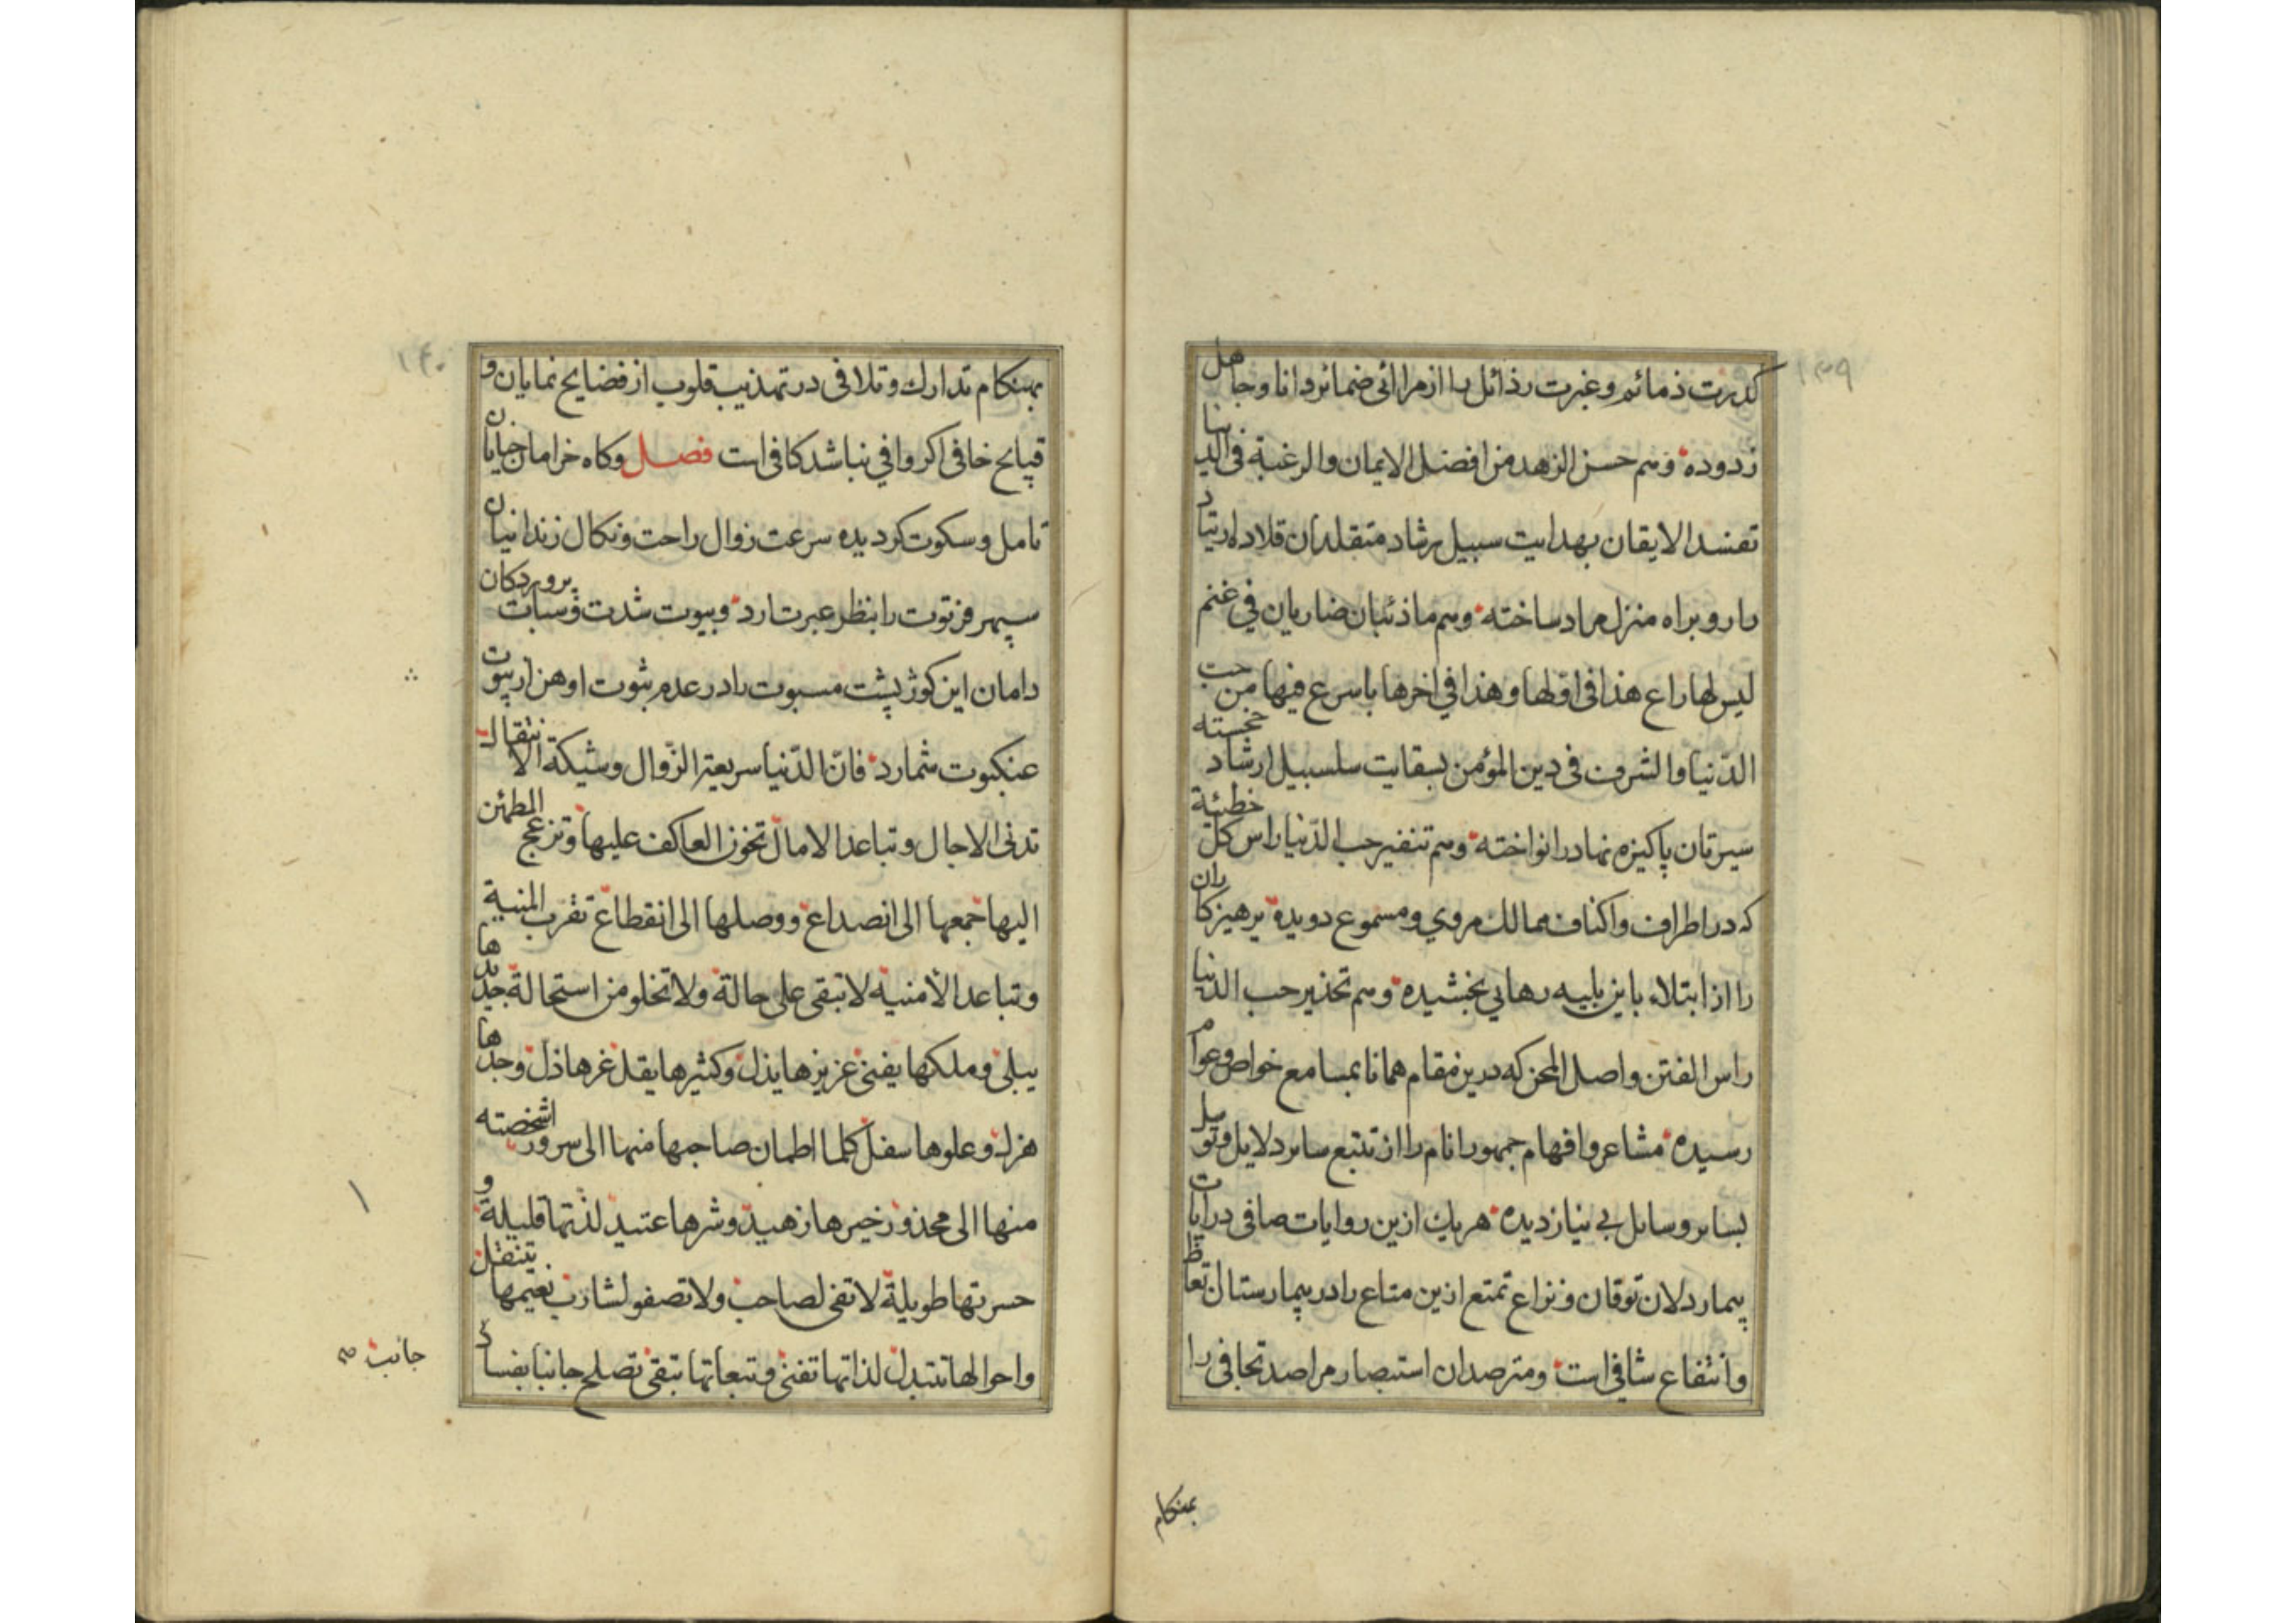 ١٣٩
كدرت ذمائم وغبرت رذائل را از مرائی ضمائر دانا وجاهل
زدوده وسم حسن الزهد من افضل الايمان والرغبة فی الدنيا
تفسد الايقان بهدايت سبيل رشاد متقلدان قلاده ارتياد
را روبراه منزل مراد ساخته وسم ماذئبان ضاريان في غنم
ليس لها راع هذا فی اولها وهذا في اخرها باسرع فيها من حب
الدّنيا والشرف فی دين المؤمن بسقايت سلسبيل ارشاد خجسته
سيرتان پاكيزه نهاد را نواخته وسم تنفير حب الدّنيا راس كلّ خطيئة
كه در اطراف واكناف ممالك مروي ومسموع دويده پرهيزكاران
را از ابتلاء باين بليه رهايي بخشيده وسم تحذير حب الدنيا
راس الفتن واصل المحن كه درين مقام همانا بمسامع خواص وعوام
رسيده مشاعر وافهام جمهور انام را از تتبع ساير دلايل وتوسل
بساير وسايل بی نياز ديده هريك ازين روايات صافی درايات
بيمار دلان توقان ونزاع تمتع ازين متاع را در بيمارستان تعاظ
وانتفاع شافی است ومترصدان استبصار مراصد تجافی را
بهنكام
١٤٠
بهنكام تدارك وتلافی در تهذيب قلوب از فضايح نمايان و
قبايح خافی اكر وافي نباشد كافی است فصل وكاه خرامان خيابان
تامل وسكوت كرديده سرعت زوال راحت ونكال زندانيان
سپهر فرتوت را بنظر عبرت ارد وبيوت شدت وسبات پروردكان
دامان اين كوژ پشت مسبوت را در عدم ثبوت اوهن از بيوت
عنكبوت شمارد فانّ الدّنيا سريعة الزّوال وشيكة الانتقال
تدنی الاجال وتباعد الامال تخون العاكف عليها وتزعج المطمئن
اليها جمعها الی انصداع ووصلها الی انقطاع تقرب المنية
وتباعد الأمنيه لا تبقی علی حالة ولا تخلو من استحالة جديدها
يبلی وملكها يفنی عزيزها يذل وكثيرها يقل عزها ذل وجدها
هزل وعلوها سفل كلما اطمان صاحبها منها الی سرور اشخصته
منها الی محذور خيرها زهيد وشرها عتيد لذتها قليلة و
حسرتها طويلة لا تفی لصاحب ولا تصفو لشارب نعيمها يتنقل
واحوالها تتبدل لذاتها تفنی وتبعاتها تبقی تصلح جانبا بفساد
جانب صح